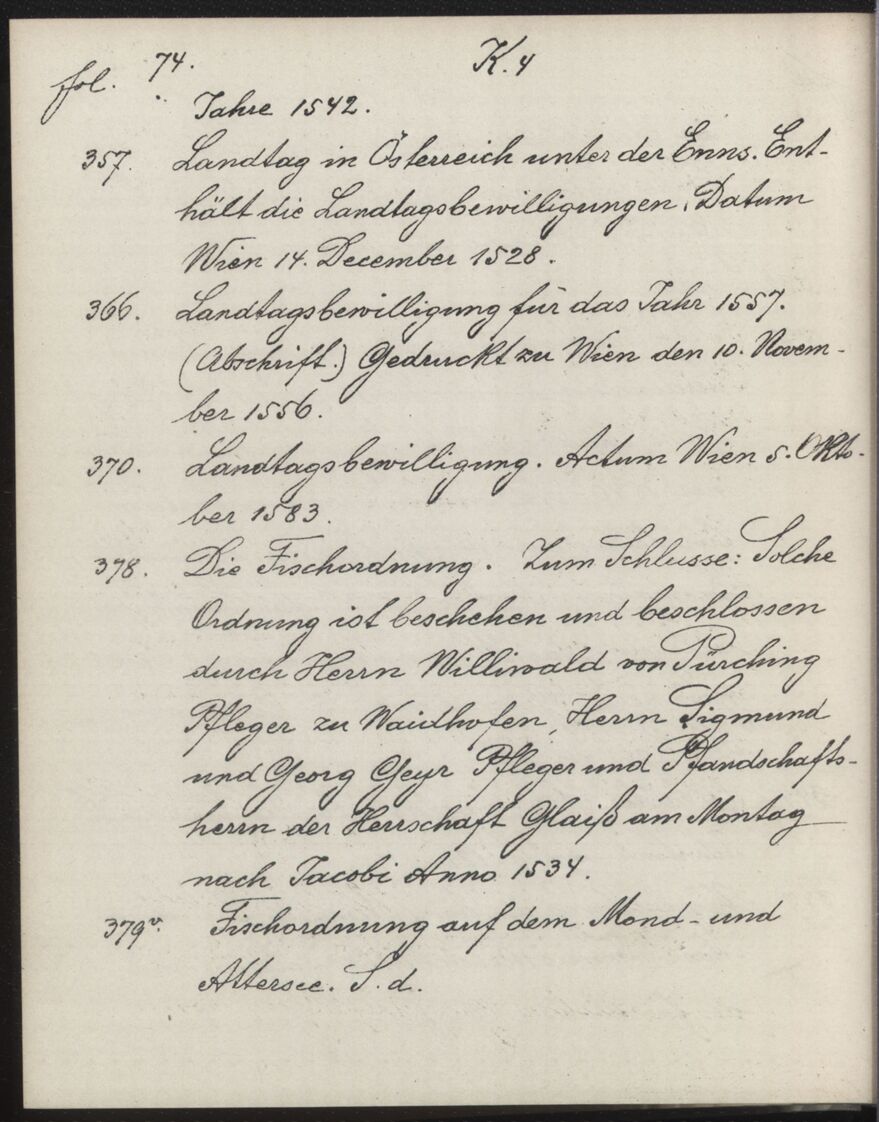 fol. 74. K. 4
Jahre 1542.
357. Landtag in Österreich unter der Enns. Ent-
hält die Landtagsbewilligungen. Datum
Wien 14. December 1528.
366. Landtagsbewilligung für das Jahr 1557.
(Abschrift.) Gedruckt zu Wien den 10. Novem-
ber 1556.
370. Landtagsbewilligung. Actum Wien 5. Okto-
ber 1583.
378. Die Fischordnung. Zum Schlusse: Solche
Ordnung ist beschehen und beschlossen
durch Herrn Williwald von Pürching
Pfleger zu Waidhofen, Herrn Sigmund
und Georg Geyr Pfleger und Pfandschafts-
herrn der Herrschaft Glaiß am Montag
nach Jacobi Anno 1534.
379v. Fischordnung auf dem Mond- und
Attersee. S. d.